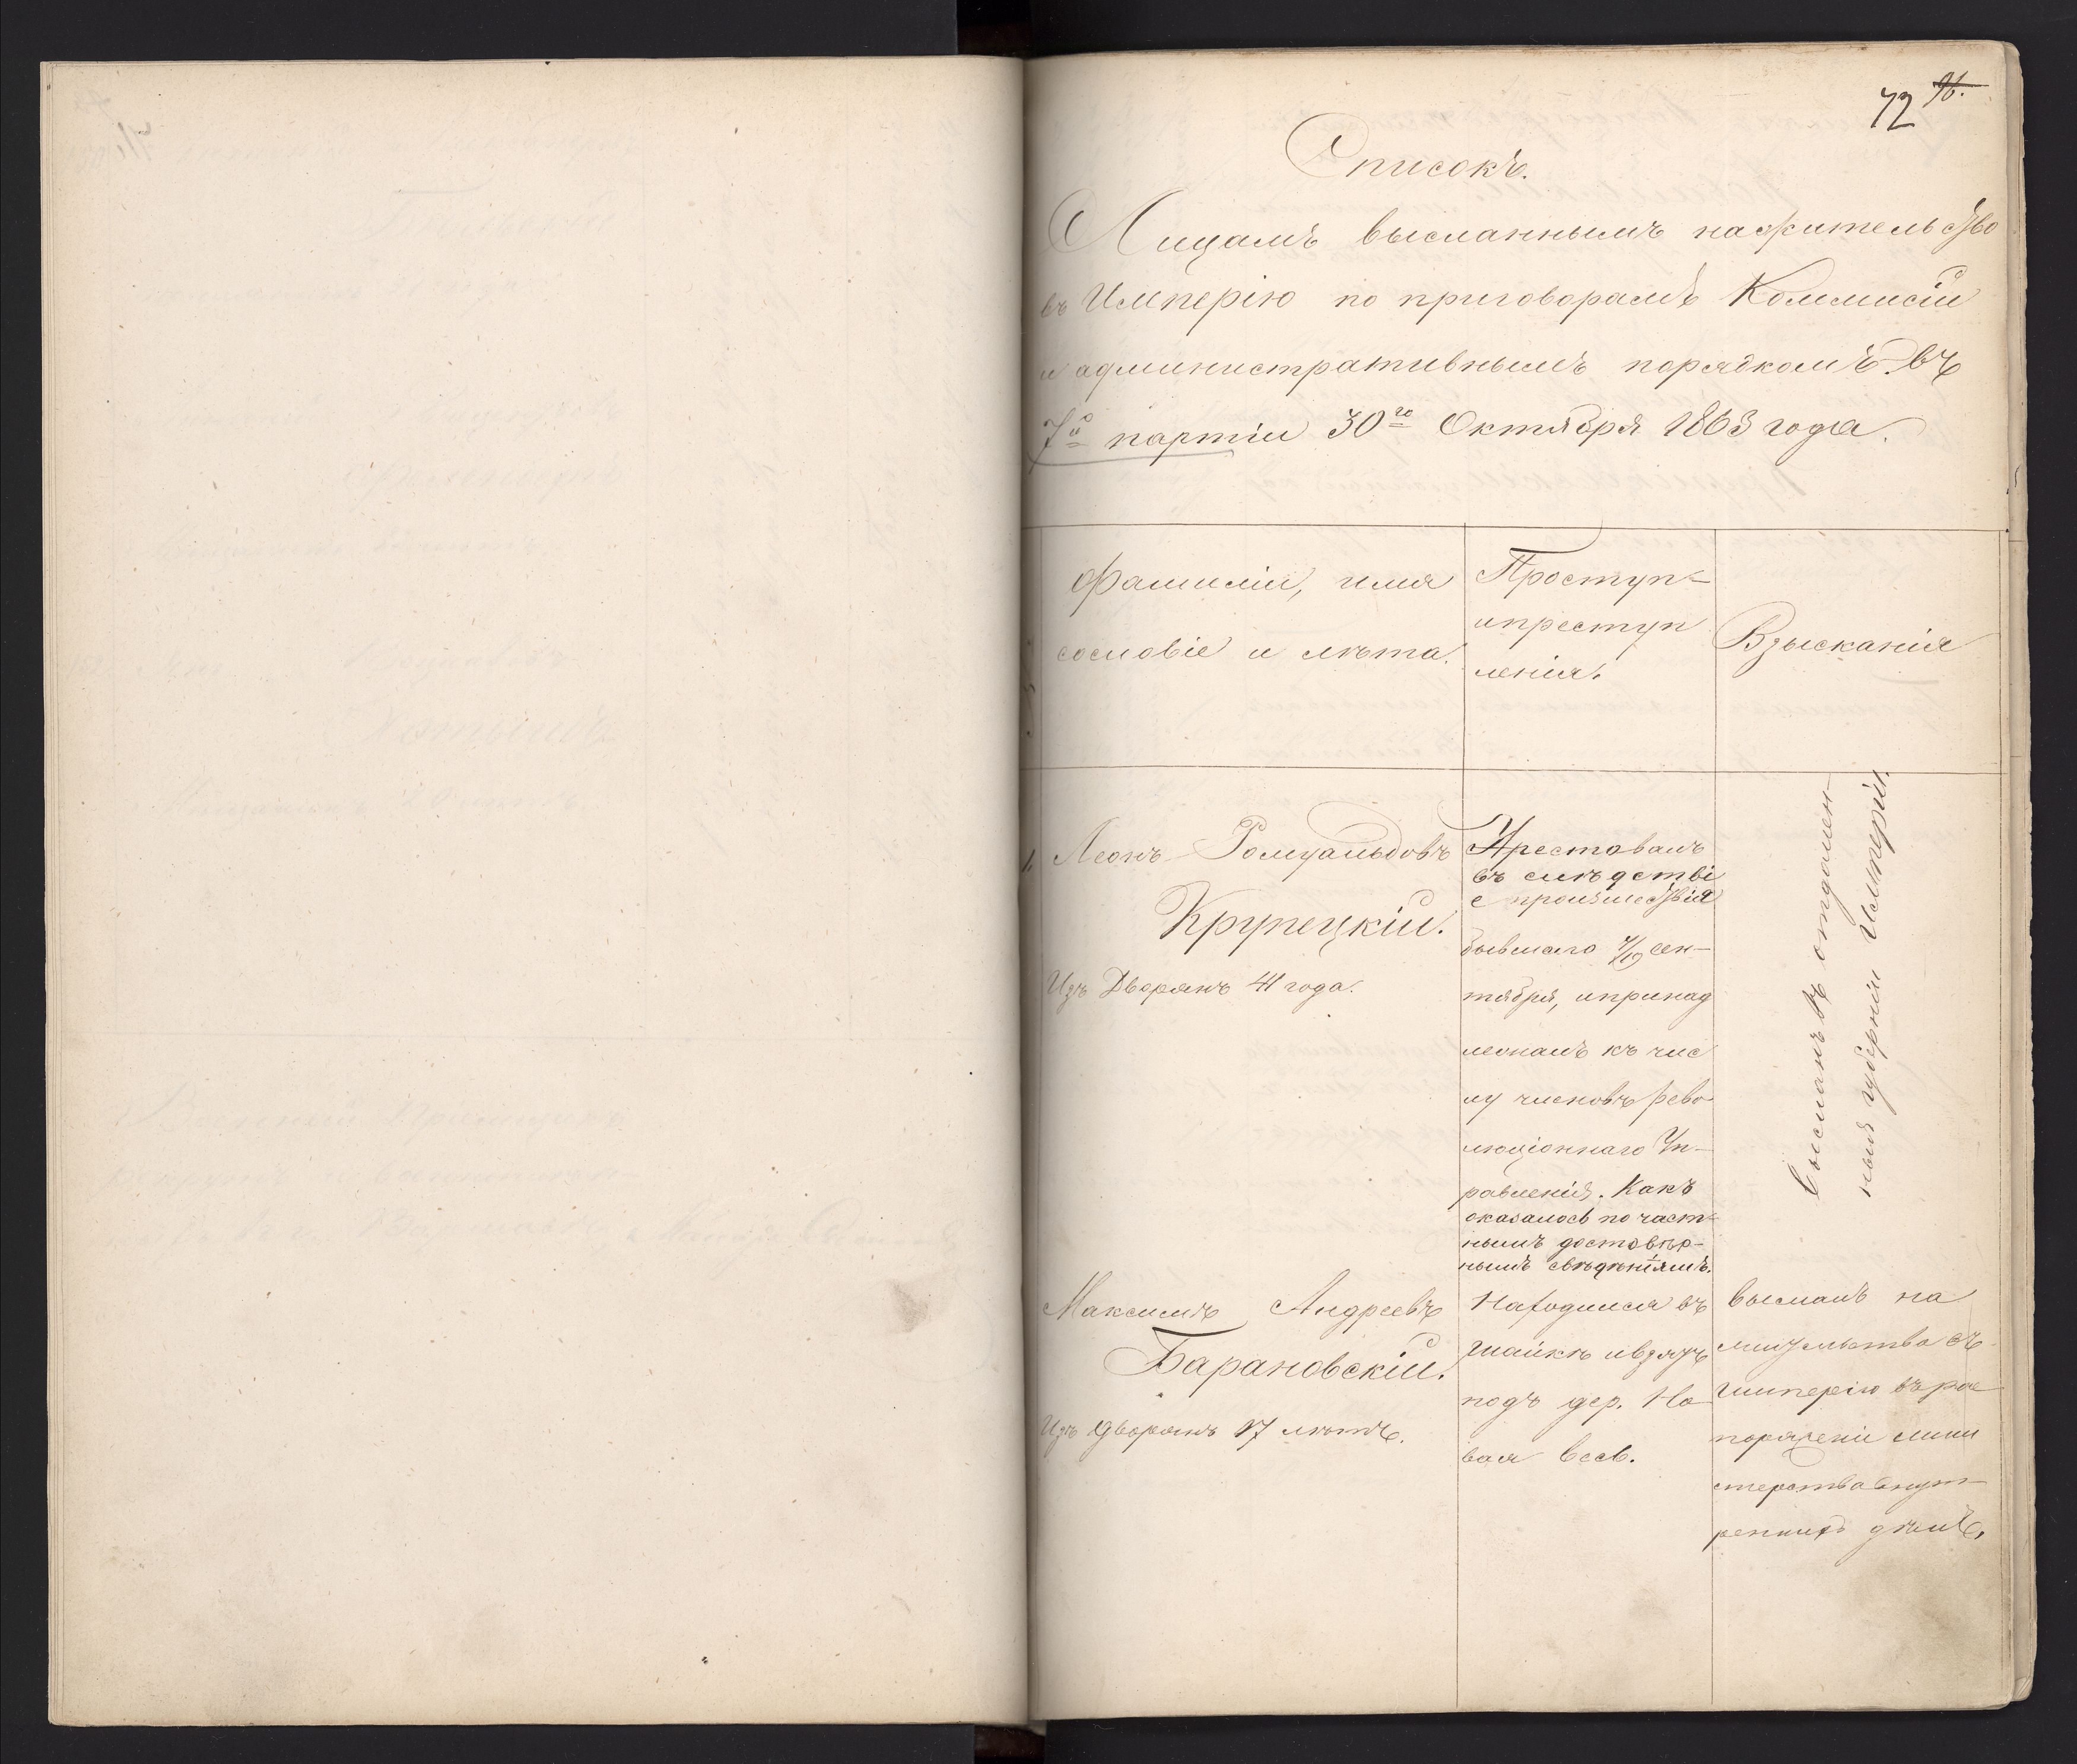 72 96.
Списокъ.
Лицамъ высланнымъ на жительство
въ Имперію по приговорамъ Коммисіи
и административнымъ порядкомъ въ
7й партіи 30го Октября 1863 года.
Фамилія, имя
сословіе и лѣта.
Проступ-
и преступ
ленія.
Взысканія
1. Леонъ Ромуальдовъ
Крупецкій.
Изъ Дворянъ 41 года.
Арестованъ
въ слѣдстві
е произшествія
бывшаго 7/19 Сен-
тября, и принад
лежалъ къ чис
лу членовъ рево
люціоннаго Уп-
равленія. Какъ
оказалось по част-
нымъ достовѣр-
нымъ свѣдѣніямъ.
Высланъ въ отдален-
ныя губерніи Имперіи.
Максимъ Андреевъ
Барановскій.
Изъ дворянъ 17 лѣтъ.
Находился въ
шайкѣ и взятъ
подъ дер. Но
вая весь.
высланъ на
въ
Имперію въ рас
поряженіе мини
стерства внут-
реннихъ дѣлъ.